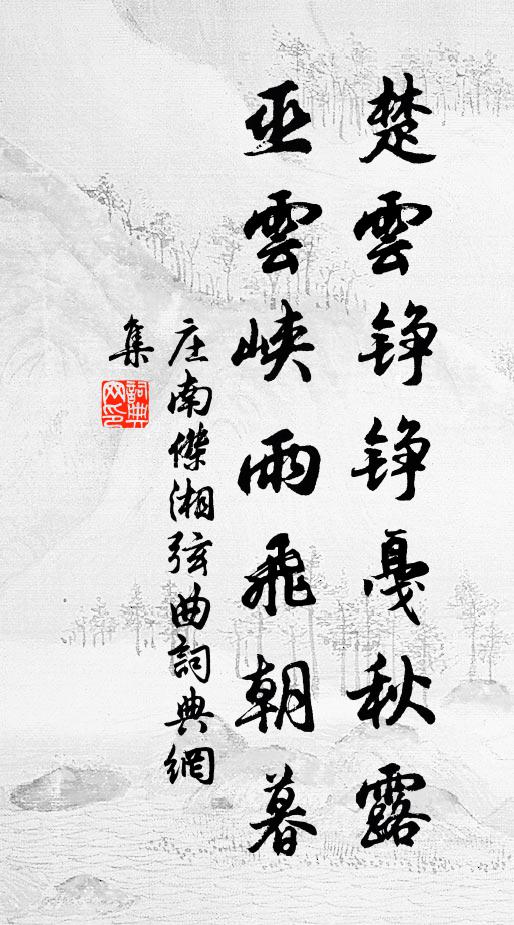 楚雲铮铮戛秋露
巫雲峡雨飛朝暮
庄南傑湘弦曲詞典網
集
詞典
网印